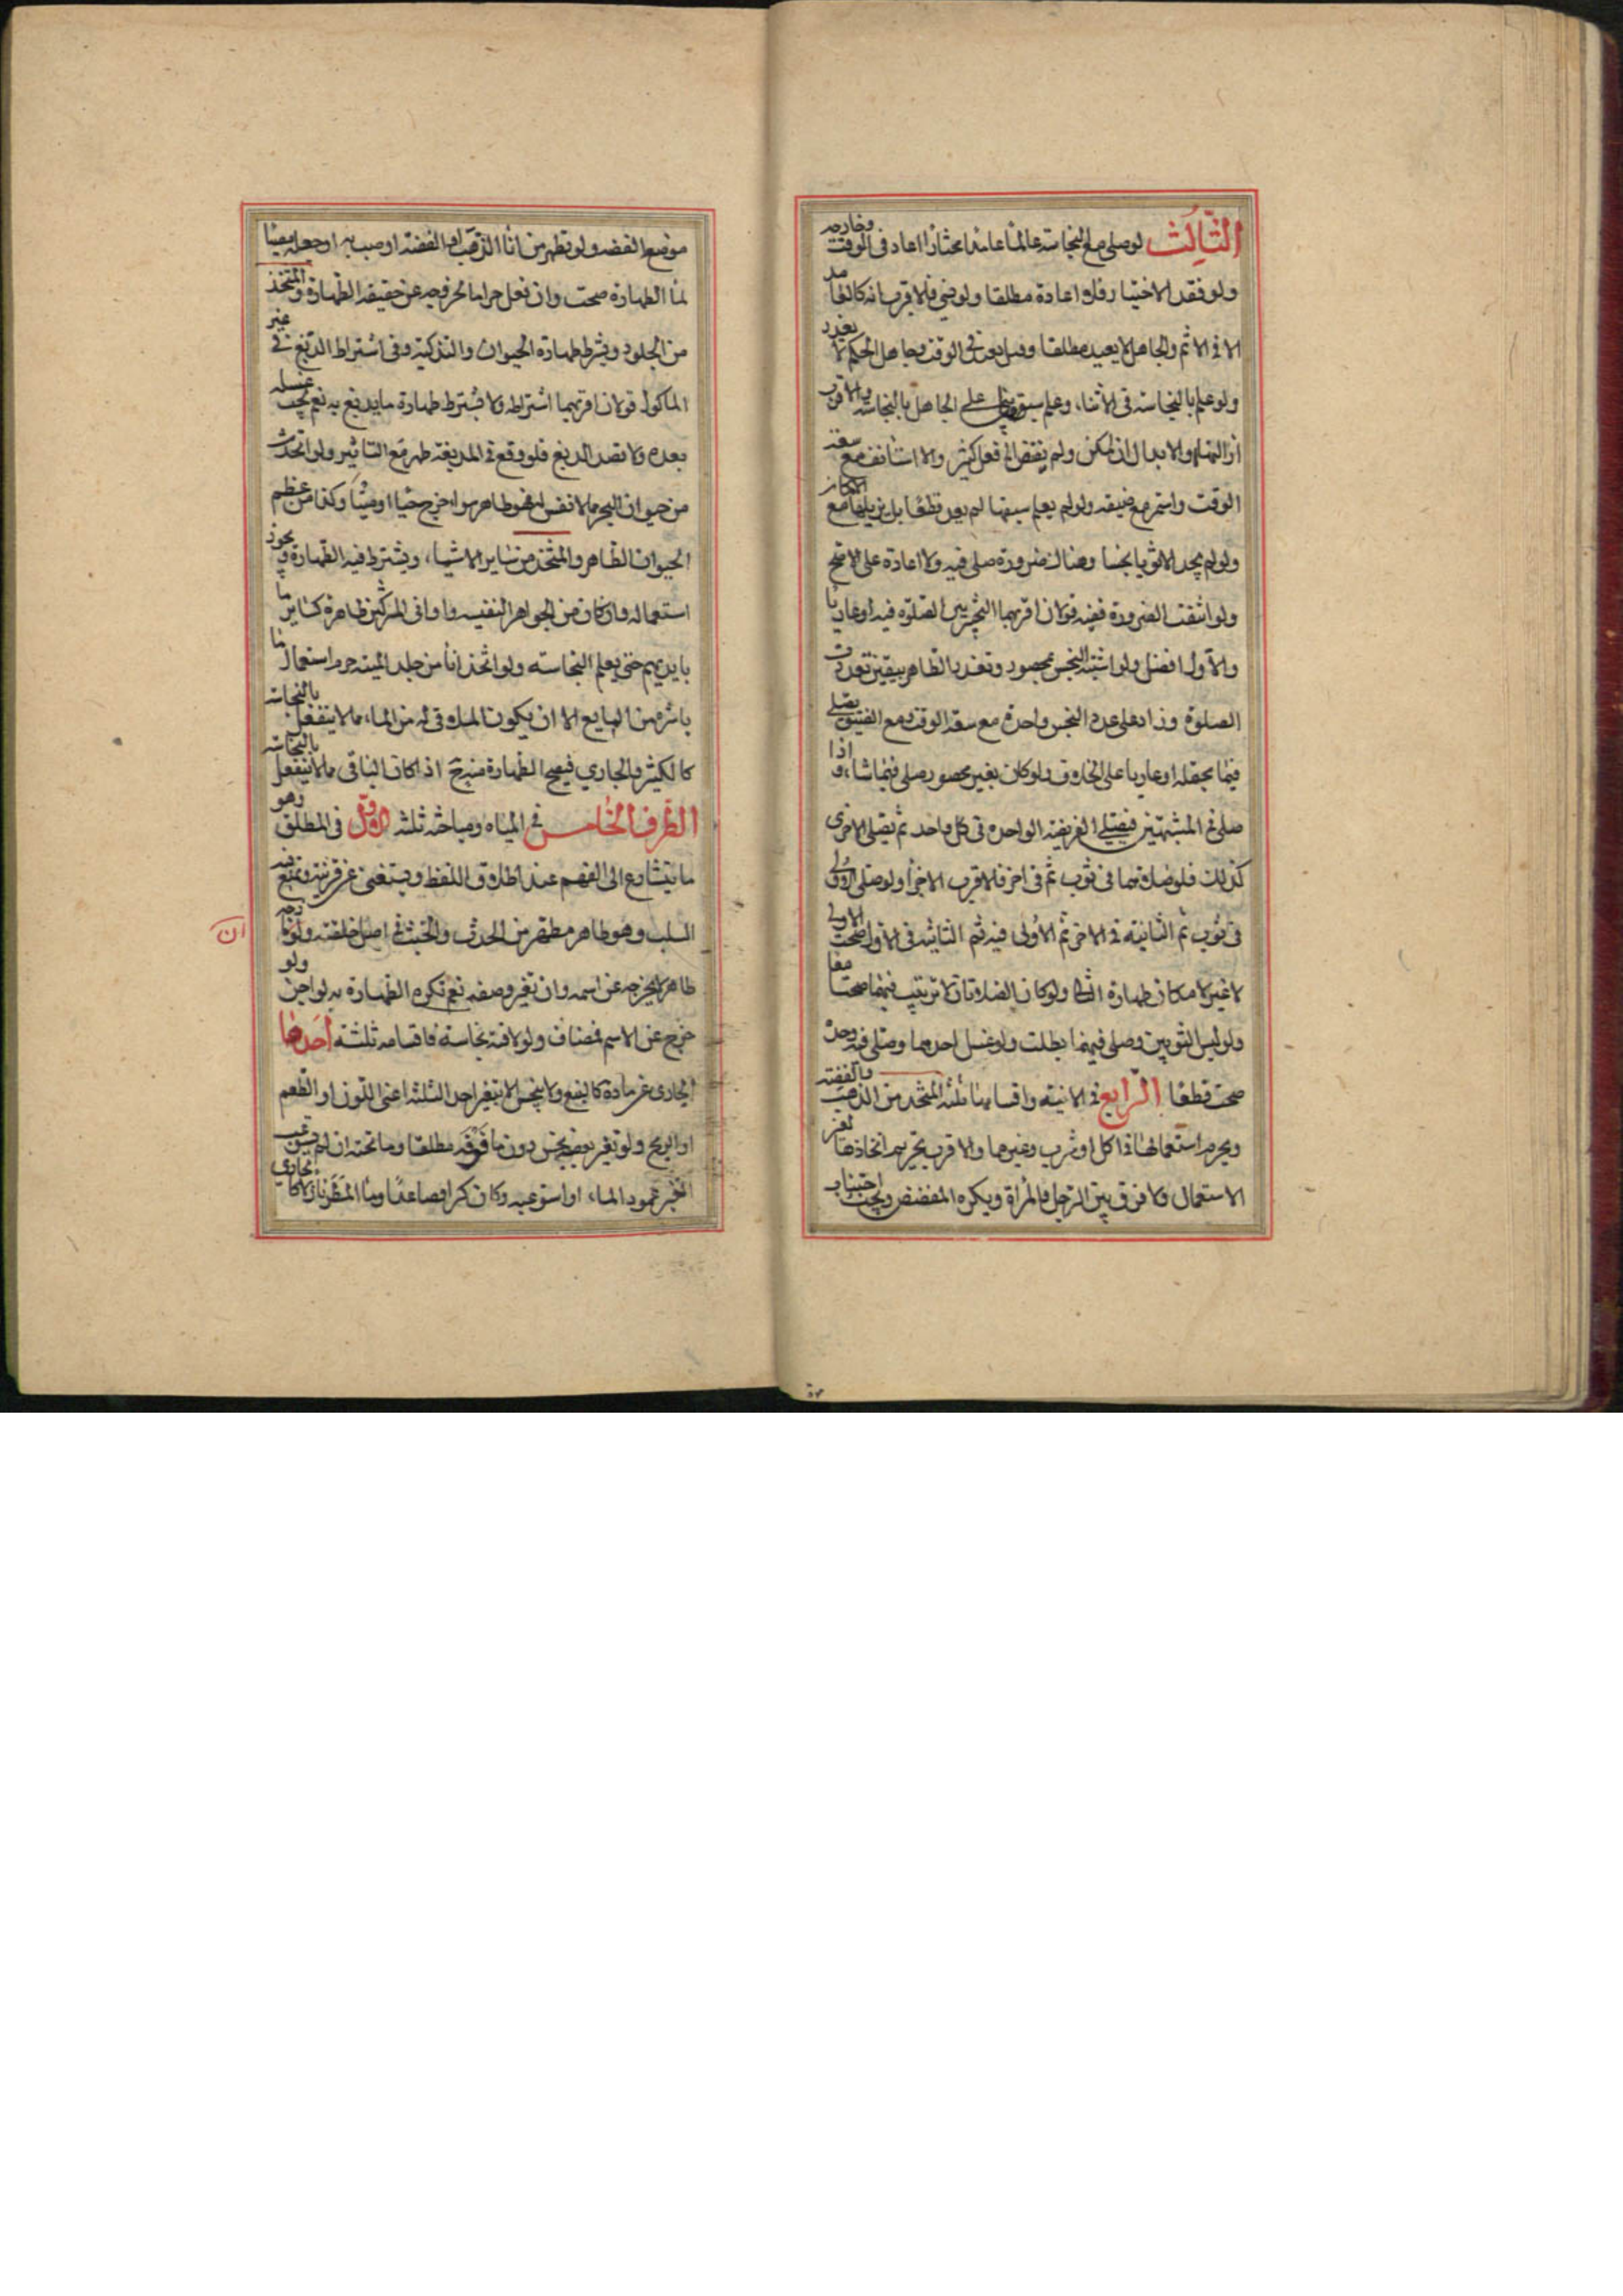 الثالث لو صلى مع النجاسة عالما عامدا مختارا اعاد في الوقت وخارجه
ولو فقد الاختيار فلا اعادة مطلقا ولو نسي فالاقرب انه كالعامد
الا في الاثم والجاهل لا يعيد مطلقا وقيل يعيد في الوقت وجاهل الحكم لا يعذر
ولو علم بالنجاسة في الاثناء وعلم سبقها على الجاهل بالنجاسة والاقرب
ازالتها والابدال ان امكن ولم يفتقر الى فعل كثير والا استأنف مع سعة
الوقت واستمر مع ضيقه ولو لم يعلم سبقها لم يعد قطعا بل يزيلها مع الامكان
ولو لم يجد الا ثوبا نجسا وهناك ضرورة صلى فيه ولا اعادة على الاصح
ولو انتفت الضرورة ففيه قولان اقربهما التخيير بين الصلوة فيه او عاريا
والاول افضل ولو اشتبه النجس بمحصور وتعذر الطاهر بيقين تعددت
الصلوة وزاد على عدد النجس واحدة مع سعة الوقت ومع الضيق يصلي
فيما يحتمله او عاريا على الخلاف ولو كان بغير محصور صلى فيما شاء و اذا
صلى في المشتبهين فيصلي الفريضة الواحدة في كل واحد ثم يصلي الاخرى
كذلك فلو صلاهما في ثوب ثم في اخر فالاقرب الاجزاء ولو صلى الاولى
في ثوب ثم الثانية في الاخر ثم الاولى فيه ثم الثانية في الاول صحت الاولى
لا غير لامكان طهارة الثاني ولو كان الصلاتان لا ترتيب فيهما صحتا معا
ولو لبس الثوبين وصلى فيهما بطلت ولو غسل احدهما وصلى فيه وحده
صحت قطعا الرابع في الانية واقسامها ثلثة المتخذ من الذهب والفضة
ويحرم استعمالها في اكل او شرب وغيرهما والاقرب تحريم اتخاذها لغير
الاستعمال ولا فرق بين الرجل والمرأة ويكره المفضض ويجب اجتناب
موضع الفضة ولو تطهر من اناء الذهب او الفضة او صب به او جعله مصبا
لماء الطهارة صحت وان فعل حراما لخروجه عن حقيقة الطهارة والمتخذ
من الجلود ويشترط طهارة الحيوان والتذكية وفي اشتراط الدبغ في غير
الماكول قولان اقربهما اشتراطه ولا يشترط طهارة ما يدبغ به نعم يجب غسله
بعده ولا قصد الدبغ فلو وقع في المدبغة طهر مع التاثير ولو اتخذت
من حيوان البحر مما لا نفس له فهو طاهر سواء اخرج حيا او ميتا وكذا من عظم
الحيوان الطاهر والمتخذ من ساير الاشياء، ويشترط فيه الطهارة ويجوز
استعماله وان كان من الجواهر النفيسه واواني المشركين طاهرة كساير ما
بايديهم حتى يعلم النجاسته ولو اتخذ اناء من جلد الميته حرم استعمال ما
باشره من المايع الا ان يكون الملاقي له من الماء مما لا ينفعل بالنجاسة
كالكثير والجاري فيصح الطهارة منه اذا كان الباقي مما لا ينفعل بالنجاسة
الطرف الخامس في المياه ومباحثه ثلثة الاول في المطلق وهو
ما يتسارع الى الفهم عند اطلاق اللفظ ويستغنى عن قرينة ويمتنع فيه
السلب وهو طاهر مطهر من الحدث والخبث في اصل خلقته ولو مازجه
ان
طاهر لا يخرجه عن اسمه وان تغير وصفه نعم تكره الطهارة به لو اجن ولو
خرج عن الاسم فمضاف ولو لاقته نجاسة فاقسامه ثلثة احدها
الجاري عن مادة كالنبع ولا ينجس الا بتغير احد الثلثة اعني اللون او الطعم
او الريح ولو تغير بعضه نجس دون ما فوقه مطلقا وما تحته ان لم يستوعب
التغير عمود الماء، او استوعبه وكان كرا فصاعدا وماء المطر نازلا كالجاري